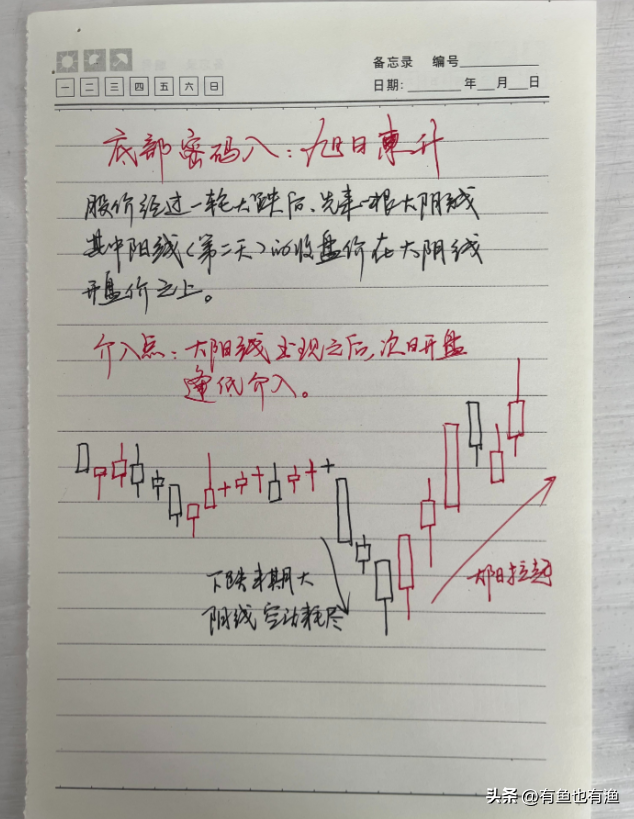 备忘录 编号
一 二 三 四 五 六 日
日期: 年 月 日
底部密码八:旭日東升
股价经过一轮大跌后、先来一根大阴线
其中阳线(第二天)的收盘价在大阴线
开盘价之上。
介入点:大阳线出现之后,次日开盘
逢低介入。
下跌末期大
阴线空动耗尽
大阳拉起
头条 @有鱼也有渔